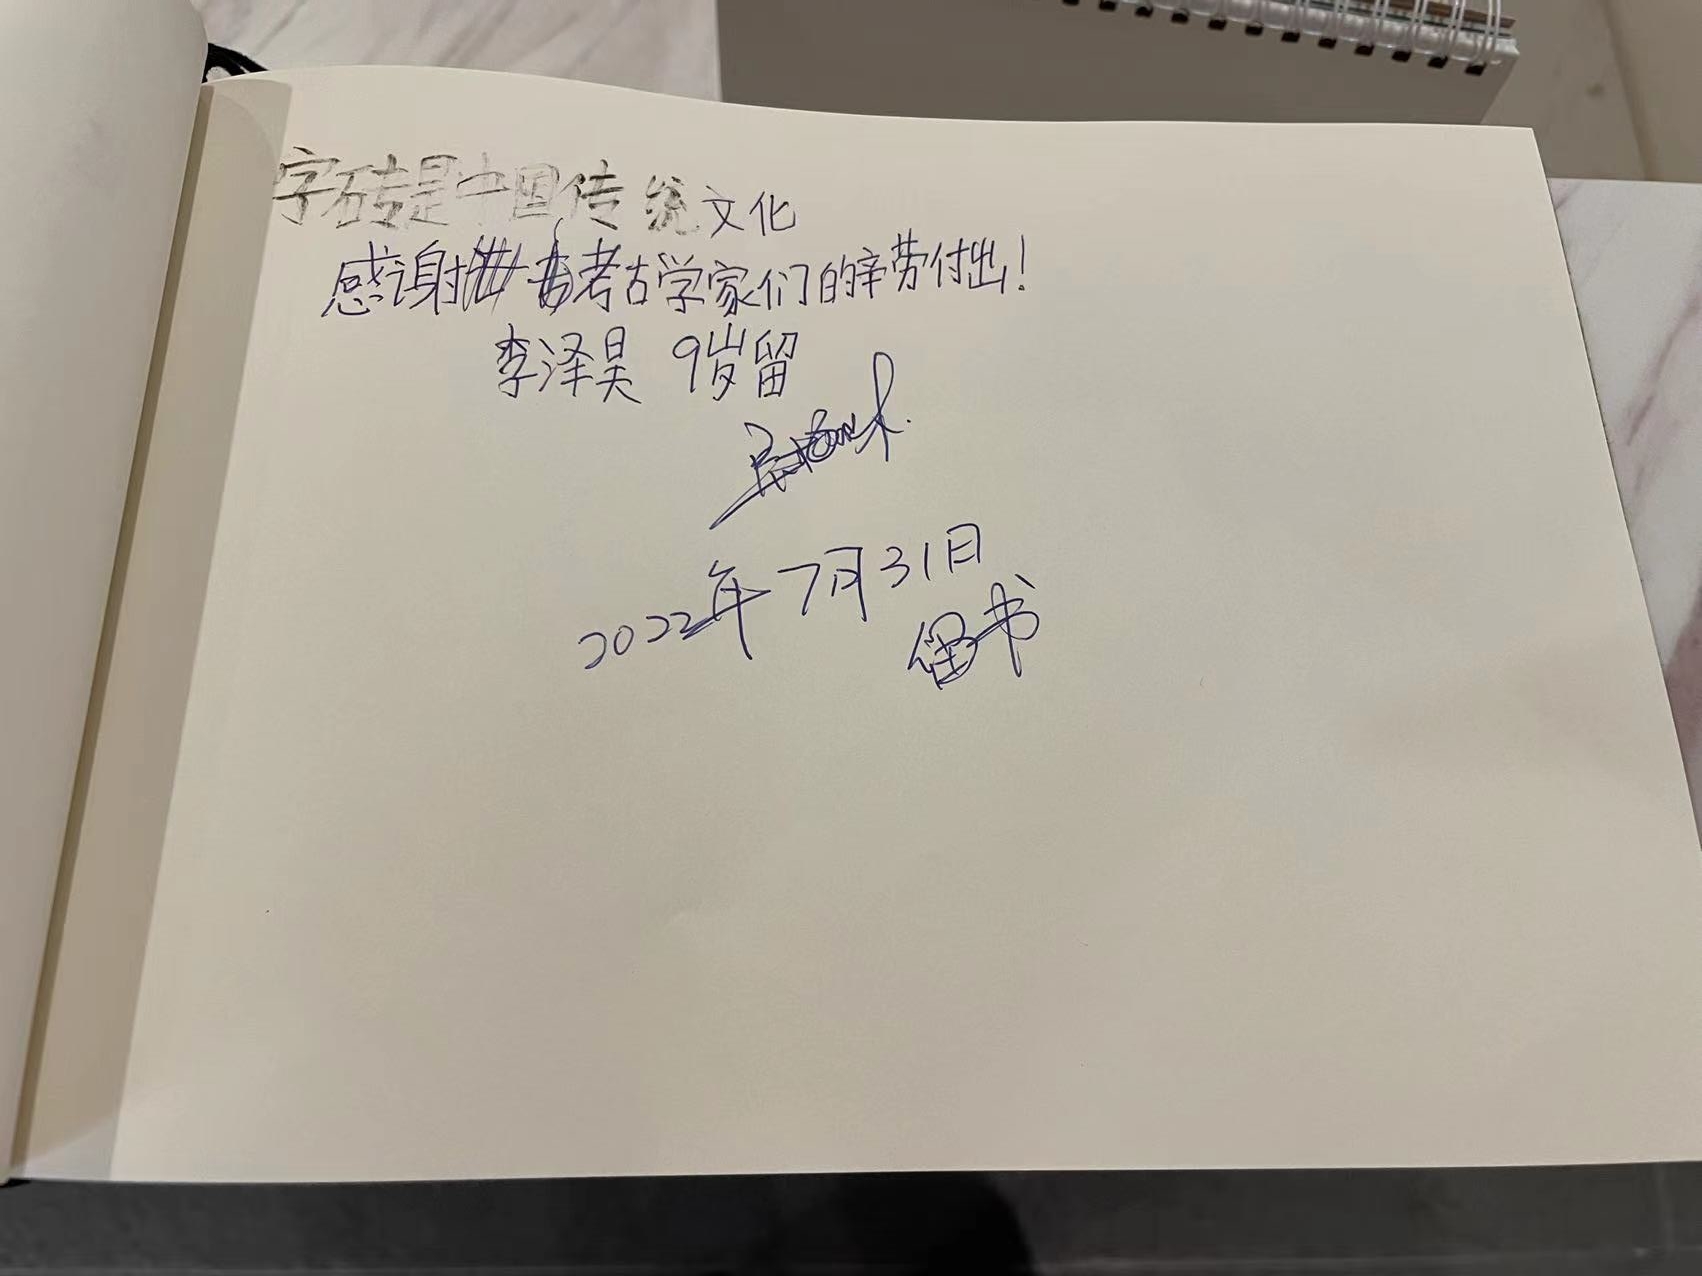 字砖是中国传统文化
感谢考古学家们的辛劳付出！
李泽昊 9岁留
2022年7月31日
留书